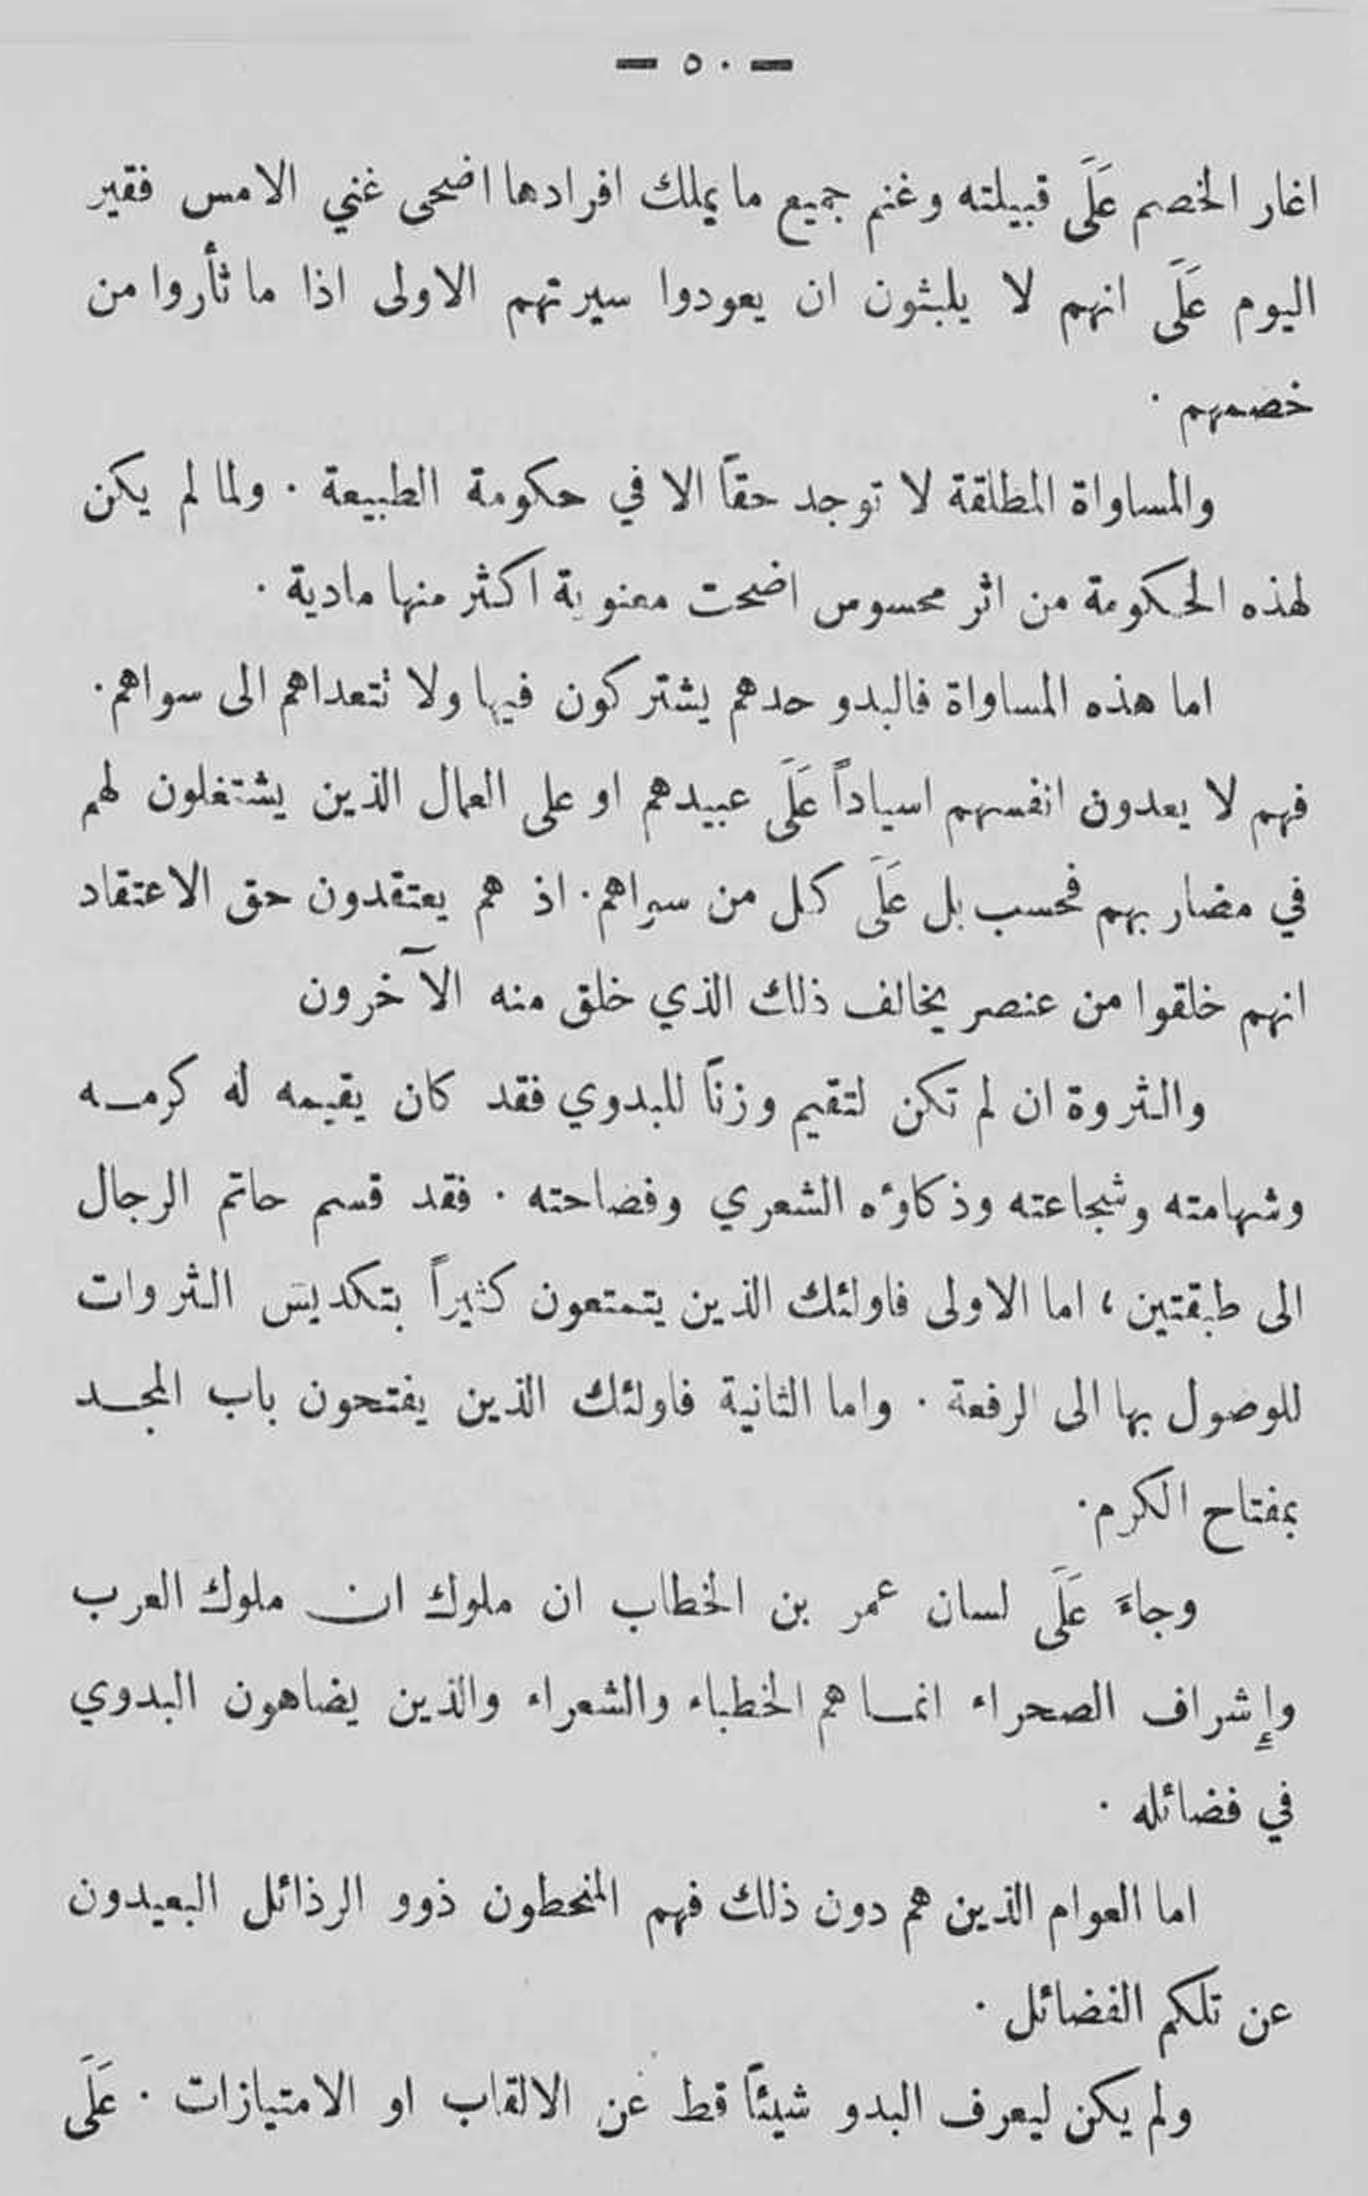 — ٥٠ —
اغار الخصم عَلَى قبيلته وغنم جميع ما يملك افرادها اضحى غني الامس فقير
اليوم عَلَى انهم لا يلبثون ان يعودوا سيرتهم الاولى اذا ما ثأروا من
خصمهم ·
والمساواة المطلقة لا توجد حقاً الا في حكومة الطبيعة · ولما لم يكن
لهذه الحكومة من اثر محسوس اضحت معنوية اكثر منها مادية ·
اما هذه المساواة فالبدو حدهم يشتركون فيها ولا تتعداهم الى سواهم ·
فهم لا يعدون انفسهم اسياداً عَلَى عبيدهم او على العمال الذين يشتغلون لهم
في مضاربهم فحسب بل عَلَى كل من سواهم · اذ هم يعتقدون حق الاعتقاد
انهم خلقوا من عنصر يخالف ذلك الذي خلق منه الآخرون
والثروة ان لم تكن لتقيم وزناً للبدوي فقد كان يقيمه له كرمـه
وشهامته وشجاعته وذكاؤه الشعري وفصاحته · فقد قسم حاتم الرجال
الى طبقتين ، اما الاولى فاولئك الذين يتمتعون كثيراً بتكديس الثروات
للوصول بها الى الرفعة · واما الثانية فاولئك الذين يفتحون باب المجـد
بمفتاح الكرم ·
وجاءَ عَلَى لسان عمر بن الخطاب ان ملوك ان ملوك العرب
وإشراف الصحراء انمـا هم الخطباء والشعراء والذين يضاهون البدوي
في فضائله ·
اما العوام الذين هم دون ذلك فهم المنحطون ذوو الرذائل البعيدون
عن تلكم الفضائل ·
ولم يكن ليعرف البدو شيئاً قط عن الالقاب او الامتيازات · عَلَى